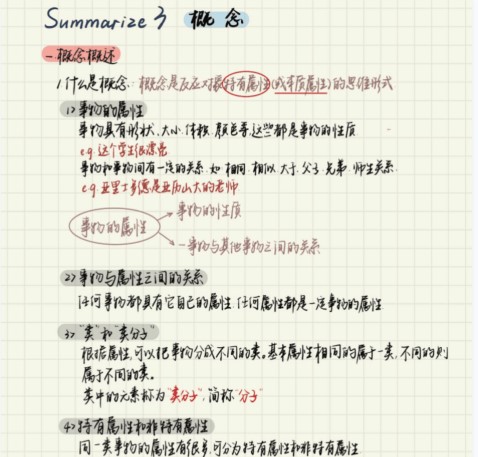 Summarize 3 概念
一.概念概述
1.什么是概念:概念是反应对象特有属性(或本质属性)的思维形式
1>事物的属性
事物具有形状、大小、体积、颜色等,这些都是事物的性质
e.g.这个学生很漂亮
事物和事物间有一定的关系.如相同.相似.大于.父子.兄弟.师生关系.
e.g.亚里士多德是亚历山大的老师
事物的属性
事物的性质
事物与其他事物之间的关系
2>事物与属性之间的关系
任何事物都具有它自己的属性.任何属性都是一定事物的属性.
3>"类"和"类分子"
根据属性,可以把事物分成不同的类。基本属性相同的属于一类,不同的则
属于不同的类。
类中的元素称为"类分子",简称"分子"
4>特有属性和非特有属性
同一类事物的属性有很多,可分为特有属性和非特有属性